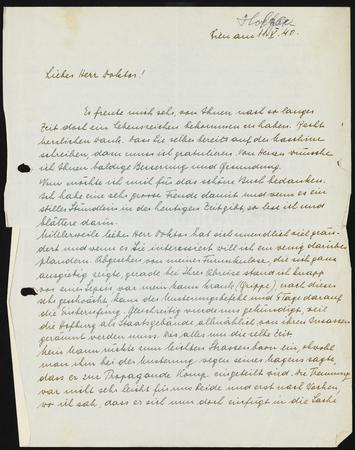 Wien am 11.V.40.
Liebes Herr Doktor!
Es freute mich sehr, von Ihnen nach so langer
Zeit doch ein Lebenszeichen bekommen zu haben. Recht
herzlichen Dank. Dass Sie selber bereits auf der Maschine
schreiben, dazu muss ich gratulieren. Von Herzen wünsche
ich Ihnen baldige Besserung und Gesundung.
Nun möchte ich mich für das schöne Buch bedanken.
Ich habe eine sehr grosse Freude damit und wenn es ein
stilles Stündlein in der heutigen Zeit gibt, so lese ich und
blättere darin.
Mittlerweile lieber Herr Doktor hat sich unendlich viel geän-
dert und wenn es Sie interessiert will ich ein wenig darüber
plaudern. Abgesehen von meiner Furunkulose, die sich ganz
ausgiebig zeigte, gerade bei Ihrer Abreise stand ich knapp
vor einer Sepsis war mein Mann krank (Grippe), nach dieser
sehr geschwächt, kam der Musterungsbefehl und 8 Tage darauf
die Einberufung. Gleichzeitig wurde uns gekündigt, weil
die Hofburg als Staatsgebäude allmählich von ihren Insassen
geräumt werden muss. Das alles um die selbe Zeit.
Mein Mann rückte zum leichten Strassenbau ein, obwohl
man ihm bei der Musterung wegen seines Magens sagte,
dass er zur Propaganda Komp. eingeteilt sind. Die Trennung
war nicht sehr leicht für uns Beide und erst nach Wochen,
wo ich sah, dass er sich nun doch einfügt in die Sache